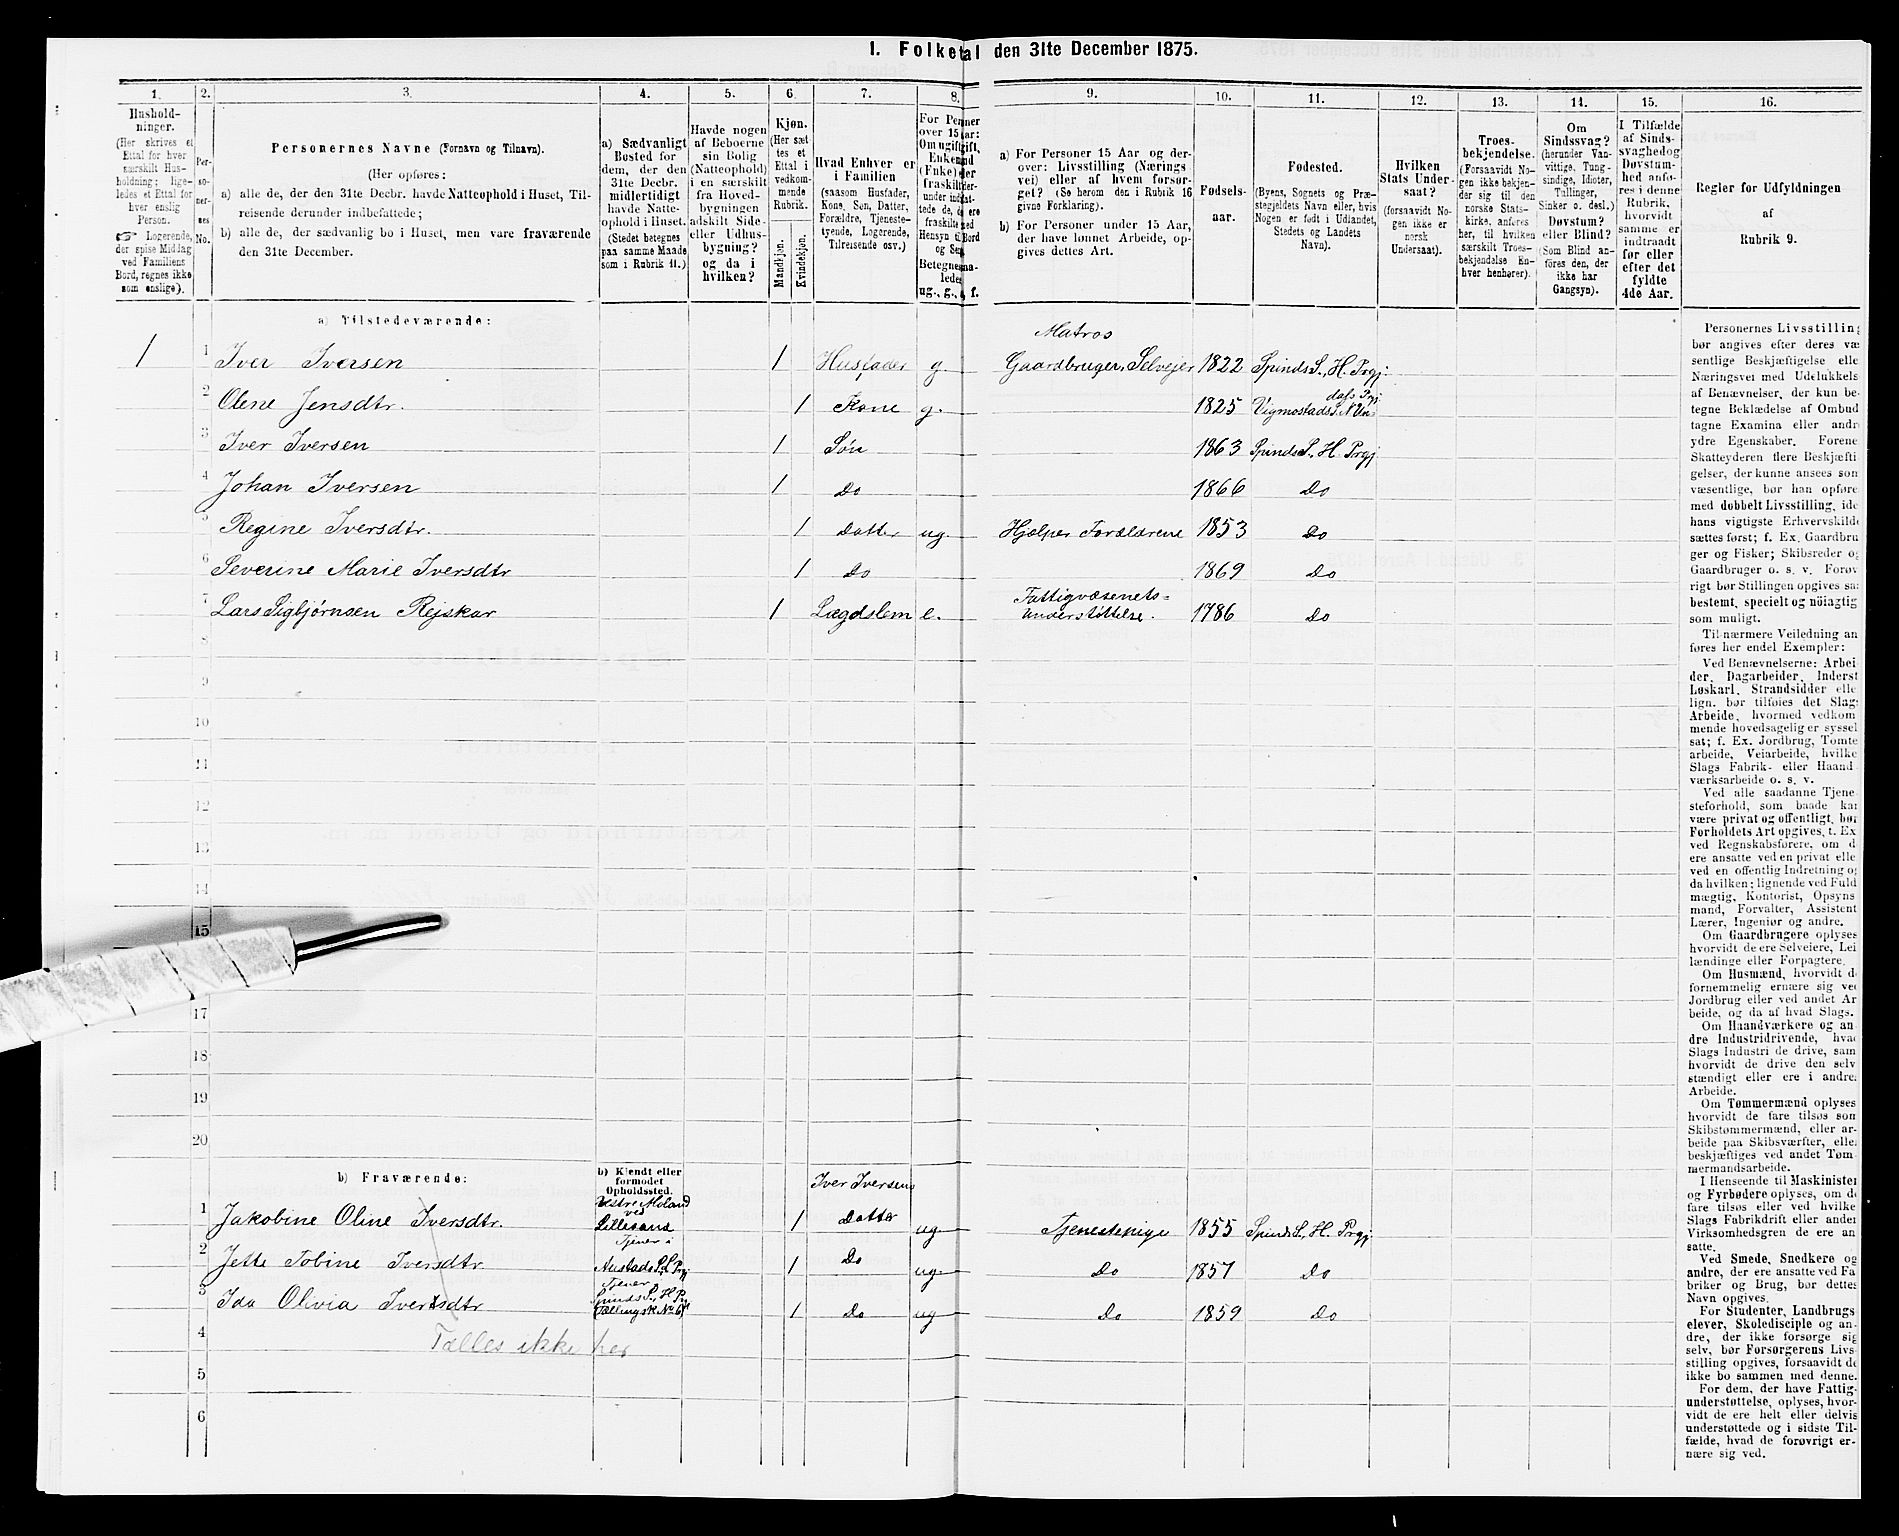 1. Folketal den 31te December 1875.
1. 2. 3. 4. 5. 6. 7. 8. 9. 10. 11. 12. 13. 14. 15. 16.
Hushold-
ninger.
(Her skrives et
Ettal for hver
særskilt Hus-
holdning; lige-
ledes et Ettal for
hver enslig
Person.
☞ Logerende,
der spise Middag
ved Familiens
Bord, regnes ikke
som enslige).
Per-
so-
ner-
nes
No.
Personernes Navne (Fornavn og Tilnavn).
(Her opføres:
a) alle de, der den 31te Decbr. havde Natteophold i Huset, Til-
reisende derunder indbefattede;
b) alle de, der sædvanlig bo i Huset, men vare fraværende
den 31te December.
a) Sædvanligt
Bosted for
dem, der den
31te Decbr.
midlertidigt
havde Natte-
ophold i Huset.
(Stedet betegnes
paa samme Maade
som i Rubrik 11.)
Havde nogen
af Beboerne
sin Bolig
(Natteophold)
i en særskilt
fra Hoved-
bygningen
adskilt Side-
eller Udhus-
bygning?
og da i
hvilken?
Kjøn.
(Her sæt-
tes et
Ettal i
vedkom-
mende
Rubrik.
Mandkjøn.
Kvindekjøn.
Hvad Enhver er
i Familien
(saasom Husfader,
Kone, Søn, Datter,
Forældre, Tjeneste-
tyende, Logerende,
Tilreisende osv.)
For Per
over 15 ar:
Om ugift
Enkem
(Enke) e
Betegne
ug., g., e, f.
a) For Personer 15 Aar og der-
over: Livsstilling (Nærings-
vei) eller af hvem forsør-
get? (Se herom den i Rubrik 16
givne Forklaring).
b) For Personer under 15 Aar,
der have lønnet Arbeide, op-
gives dettes Art.
Fødsels-
aar.
Fødested.
(Byens, Sognets og Præ-
stegjeldets Navn eller, hvis
Nogen er født i Udlandet,
Stedets og Landets
Navn).
Hvilken
Stats Under-
saat?
(forsaavidt No-
gen ikke er
norsk
Undersaat).
Troes-
bekjendelse.
(Forsaavidt No-
gen ikke bekjen-
der sig til den
norske Stats-
kirke, anføres
her, til hvilken
særskilt Troes-
bekjendelse En-
hver henhører).
Om
Sindssvag?
(herunder Van-
vittige, Tung-
sindige, Idioter,
Tullinger,
Sinker o. desl.)
Døvstum?
eller Blind?
(Som Blind an-
føres den, der
ikke har
Gangsyn).
I Tilfælde
af Sinds-
svaghedog
Døvstum-
hed anfø-
res i denne
Rubrik,
hvorvidt
samme er
indtraadt
før eller
efter det
fyldte
4de Aar.
Regler for Udfyldningen
af
Rubrik 9.
a) Tilstedeværende:
Matros
1 1 Iver Iversen 1 Husfader g. Gaardbruger, Selveier 1822 Spinds S., H. Prgj.
dafs Prgj
2 Olene Jensdtr. 1 Kone g. 1825 Vigmostads S. N Un=
3 Iver Iversen 1 Søn 1863 Spinds S., H. Prgj
4 Johan Iversen 1 Do 1866 Do
5 Regine Iversdtr. 1 Datter ug. Hjælper Forældrene 1853 Do
6 Severine Marie Iversdtr 1 Do 1869 Do
Fattigvæsenets=
7 Lars Sigbjørnsen Rejskar 1 Lægdslem e. Understøttelse. 1786 Do
8
9
10
11
12
13
14
15
17
18
19
20
b) Fraværende:
b) Kjendt eller
formodet
Opholdssted.
Iver Iversens
Vestre Moland
ved
1 Jakobine Oline Iversdtr. Lillesand 1 Datter ug Tjenestepige 1855 Spinds S., H. Prgj.
Tjener i
2 Jette Tobine Iversdtr Austads S. L Prgj 1 Do ug. Do 1857 Do
Tjener
Spinds S., H Pr
3 Ida Olivia Iversdtr (Tællingsk No 6) 1 Do ug Do 1859 Do
4 Tælles ikke her
5
6
Personernes Livsstilling
bør angives efter deres væ
sentlige Beskjæftigelse elle
Næringsvei med Udelukkels
af Benævnelser, der kun be-
tegne Beklædelse af Ombud
tagne Examina eller andr
ydre Egenskaber. Forene
Skatteyderen flere Beskjæfti
gelser, der kunne ansees som
væsentlige, bør han opføre
med dobbelt Livsstilling, ide
hans vigtigste Erhvervskilde
sættes først; f. Ex. Gaardbru
ger og Fisker; Skibsreder og
Gaardbruger o. s. v. Forøv
rigt bør Stillingen opgives saa
bestemt, specielt og nöiagtig
som muligt.
Til nærmere Veiledning an
føres her endel Exempler:
Ved Benævnelserne: Arbei
der, Dagarbeider, Inderst
Løskarl, Strandsidder elle
lign. bør tilføies det Slag
Arbeide, hvormed vedkom
mende hovedsagelig er syssel
sat; f. Ex. Jordbrug, Tomte
arbeide, Veiarbeide, hvilke
Slags Fabrik- eller Haand
værksarbeide o. s. v.
Ved alle saadanne Tjene
steforhold, som baade kan
være privat og offentligt, bør
Forholdets Art opgives, t. Ex
ved Regnskabsførere, om d
ere ansatte ved en privat elle
ved en offentlig Indretning og
da hvilken; lignende ved Fuld
mægtig, Kontorist, Opsyns
mand, Forvalter, Assistent
Lærer, Ingeniør og andre.
Om Gaardbrugere oplyses
hvorvidt de ere Selveiere, Lei
lændinge eller Forpagtere.
Om Husmænd, hvorvidt d
fornemmelig ernære sig ved
Jordbrug eller ved andet Ar
beide, og da af hvad Slags.
Om Haandværkere og an-
dre Industridrivende, hvad
Slags Industri de drive, sam
hvorvidt de drive den selv
stændigt eller ere i andres
Arbeide.
Om Tømmermænd oplyses
hvorvidt de fare tilsøs som
Skibstømmermænd, eller ar-
beide paa Skibsværfter, eller
beskjæftiges ved andet Tøm-
mermandsarbeide.
I Henseende til Maskinister
og Fyrbødere oplyses, om de
fare tilsøs eller ved hvilke
Slags Fabrikdrift eller anden
Virksomhedsgren de ere an
satte.
Ved Smede, Snedkere og
andre, der ere ansatte ved Fa
briker og Brug, bør dettes
Navn opgives.
For Studenter, Landbrugs-
elever, Skoledisciple og an-
dre, der ikke forsørge sig
selv, bør Forsørgerens Livs-
stilling opgives, forsaavidt de
ikke bo sammen med denne.
For dem, der have Fattig-
understøttelse, oplyses, hvor-
vidt de ere helt eller delvis
understøttede og i sidste Til-
fælde, hvad de forøvrigt er-
nære sig ved.